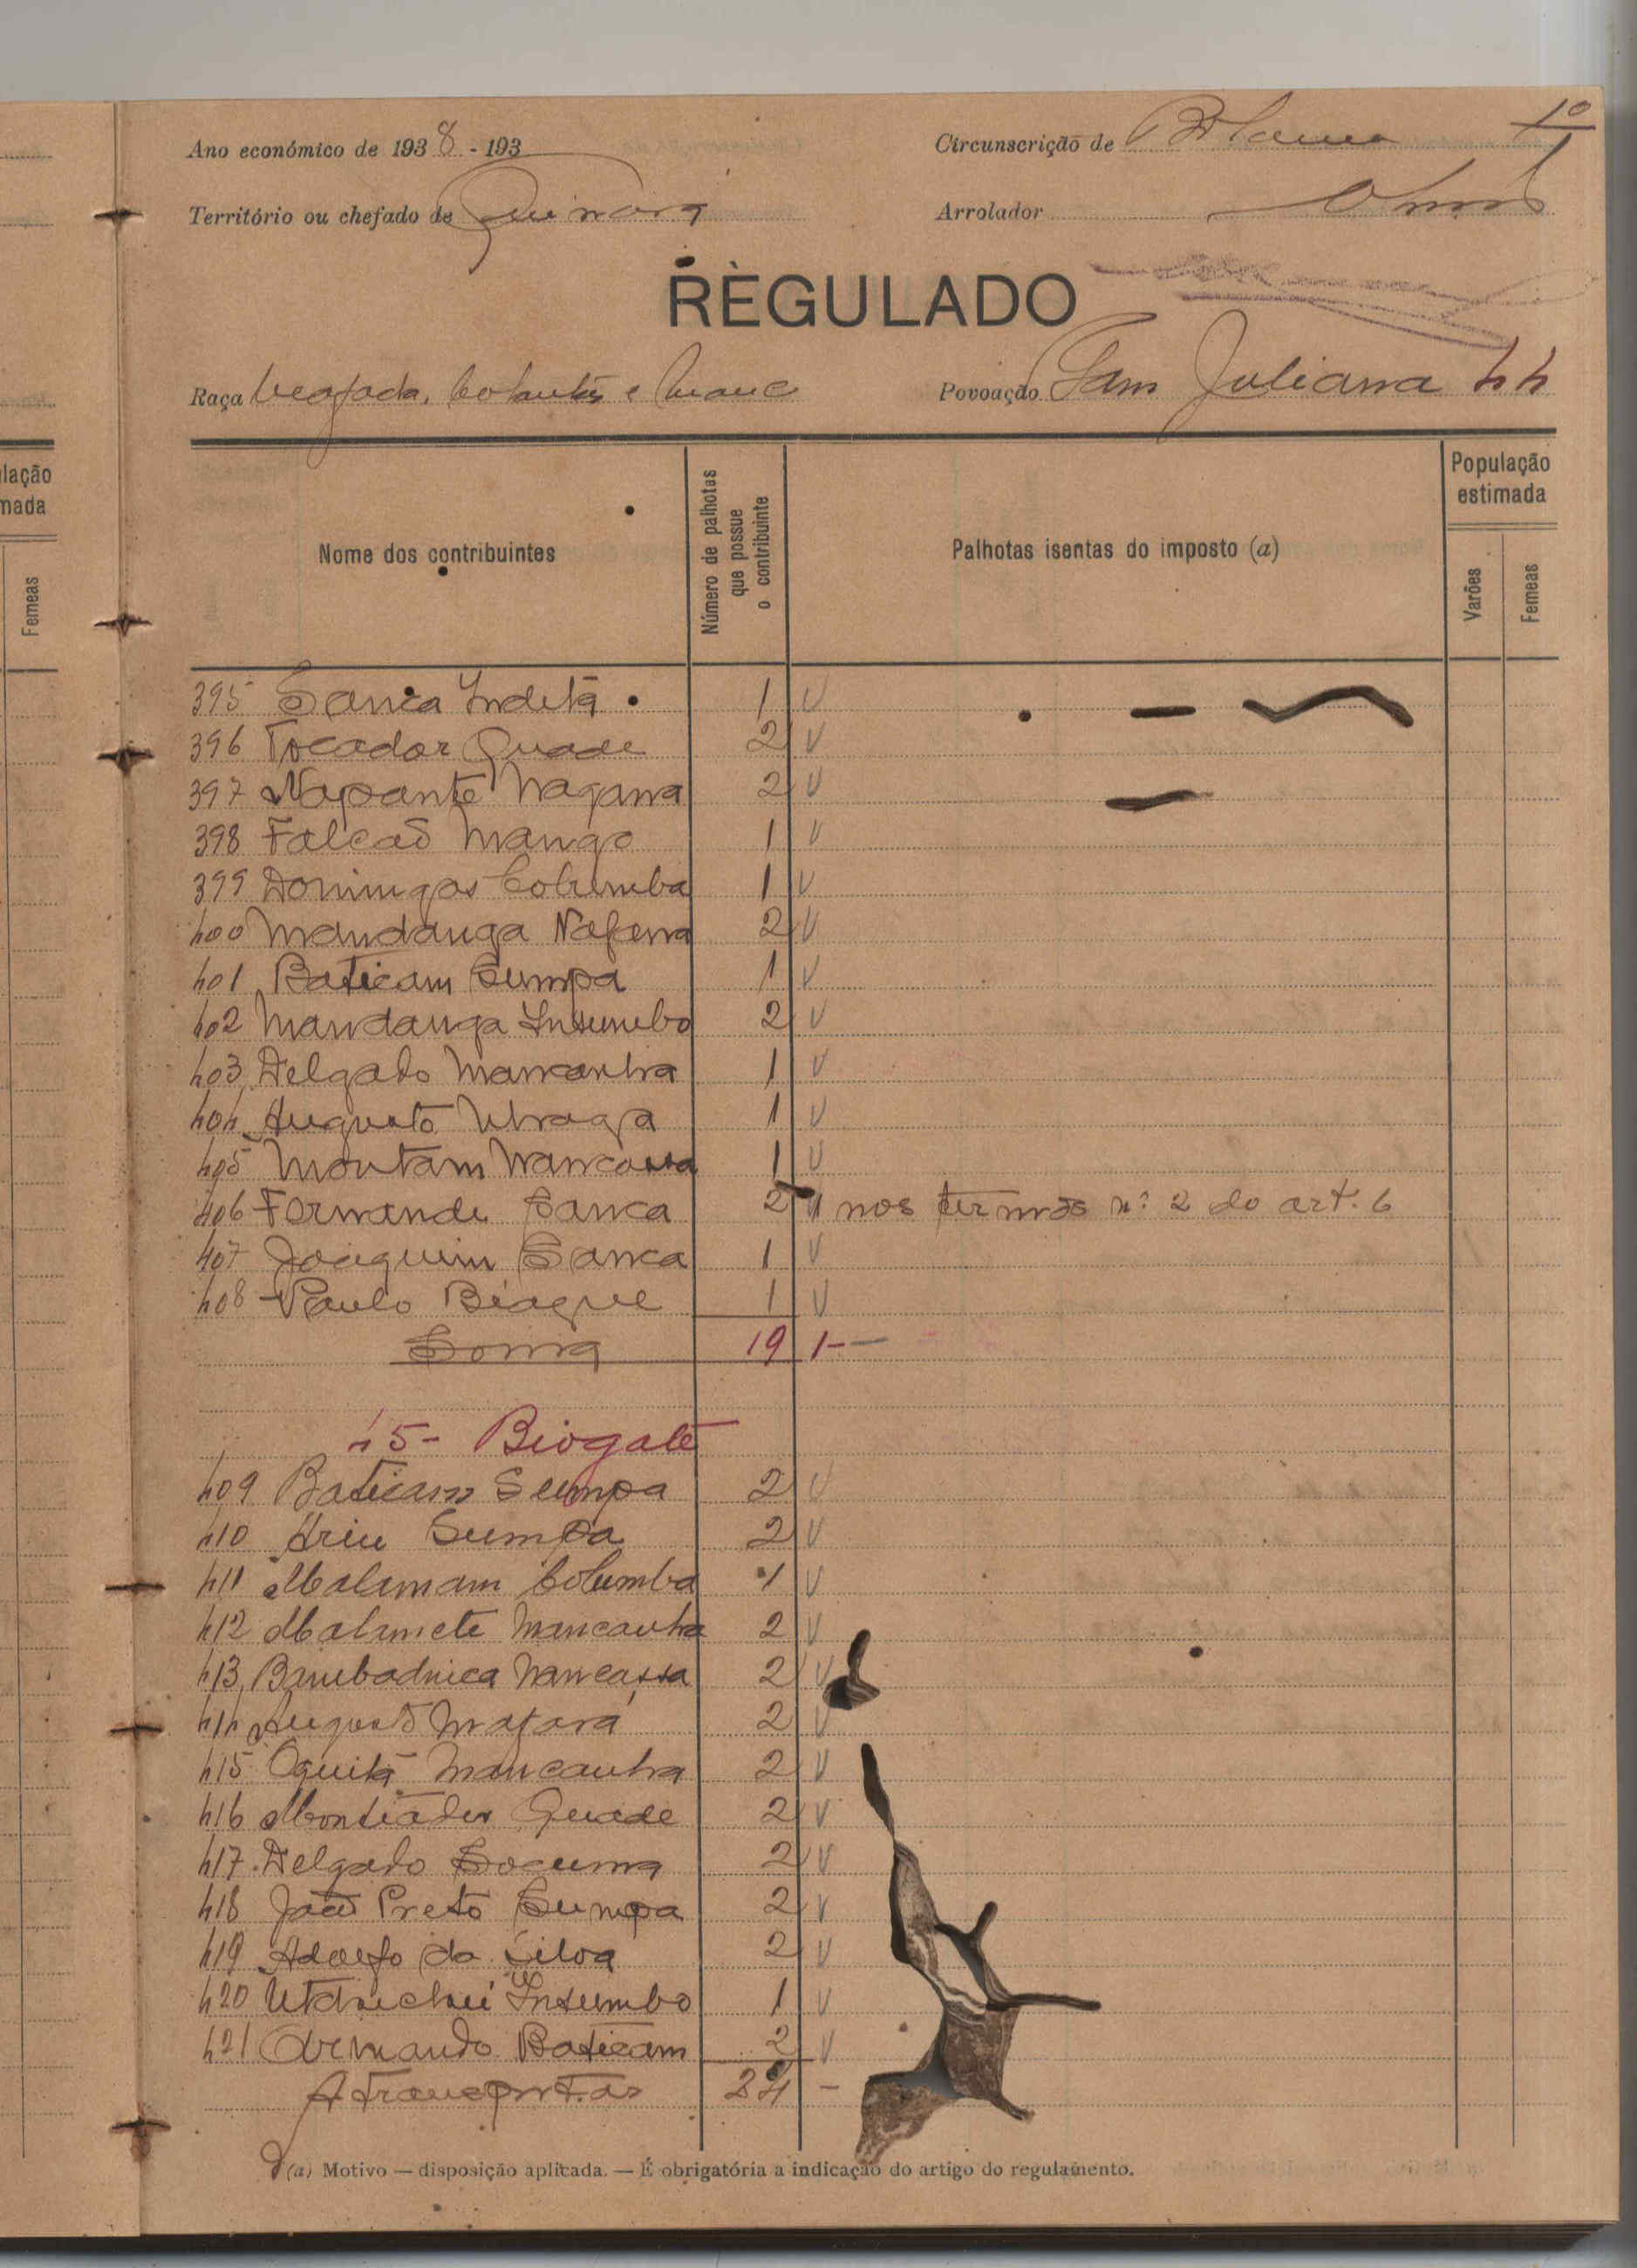 Ano económico de 1938 - 193
Circunscrição de Bolama
1º
Território ou chefado de Quinará
Arrolador
REGULADO
Raça beafada,
Povoação Sam Juliana 44
Nome dos contribuintes
Número de palhotas que possue o contribuinte
Palhotas isentas do imposto (a)
População estimada
Varões
Femeas
lação
mada
Femeas
395 Sanca Indetá 1 V
396 Tocador Quade 2 V
397 Napante Nagana 2 V
398 Falcão Mango 1 V
399 Domingos Columba 1 V
400 Mandanga Nafanna 2 V
401 Baticam Sumpa 1 V
402 Mandanga Insumbo 2 V
403 Delgado Mancanha 1 V
404 Augusto 1 V
405 Montam Nancassa 1 V
406 Fernande Sanca 2 1 nos termos nº 2 do art. 6
407 Joaquim Sanca 1 V
408 Paulo Biague 1 V
Soma 19 1 -
45 - Biogate
409 Baticam Sumpa 2 V
410 Ariu Sumpa 2 V
411 Malamam Columba 1 V
412 Malamete Mancanha 2 V
413 Nancassa 2 V
414 Augusto Mafará 2 V
415 Oquitá Mancanha 2 V
416 Montiador Quade 2 V
417 Delgado Socuma 2 V
418 João Preto Sumpa 2 V
419 Adolfo da Silva 2 V
420 Insumbo 1 V
421 Armando Baticam 2 V
A transportar 24 -
(a) Motivo — disposição aplicada. — É obrigatória a indicação do artigo do regulamento.